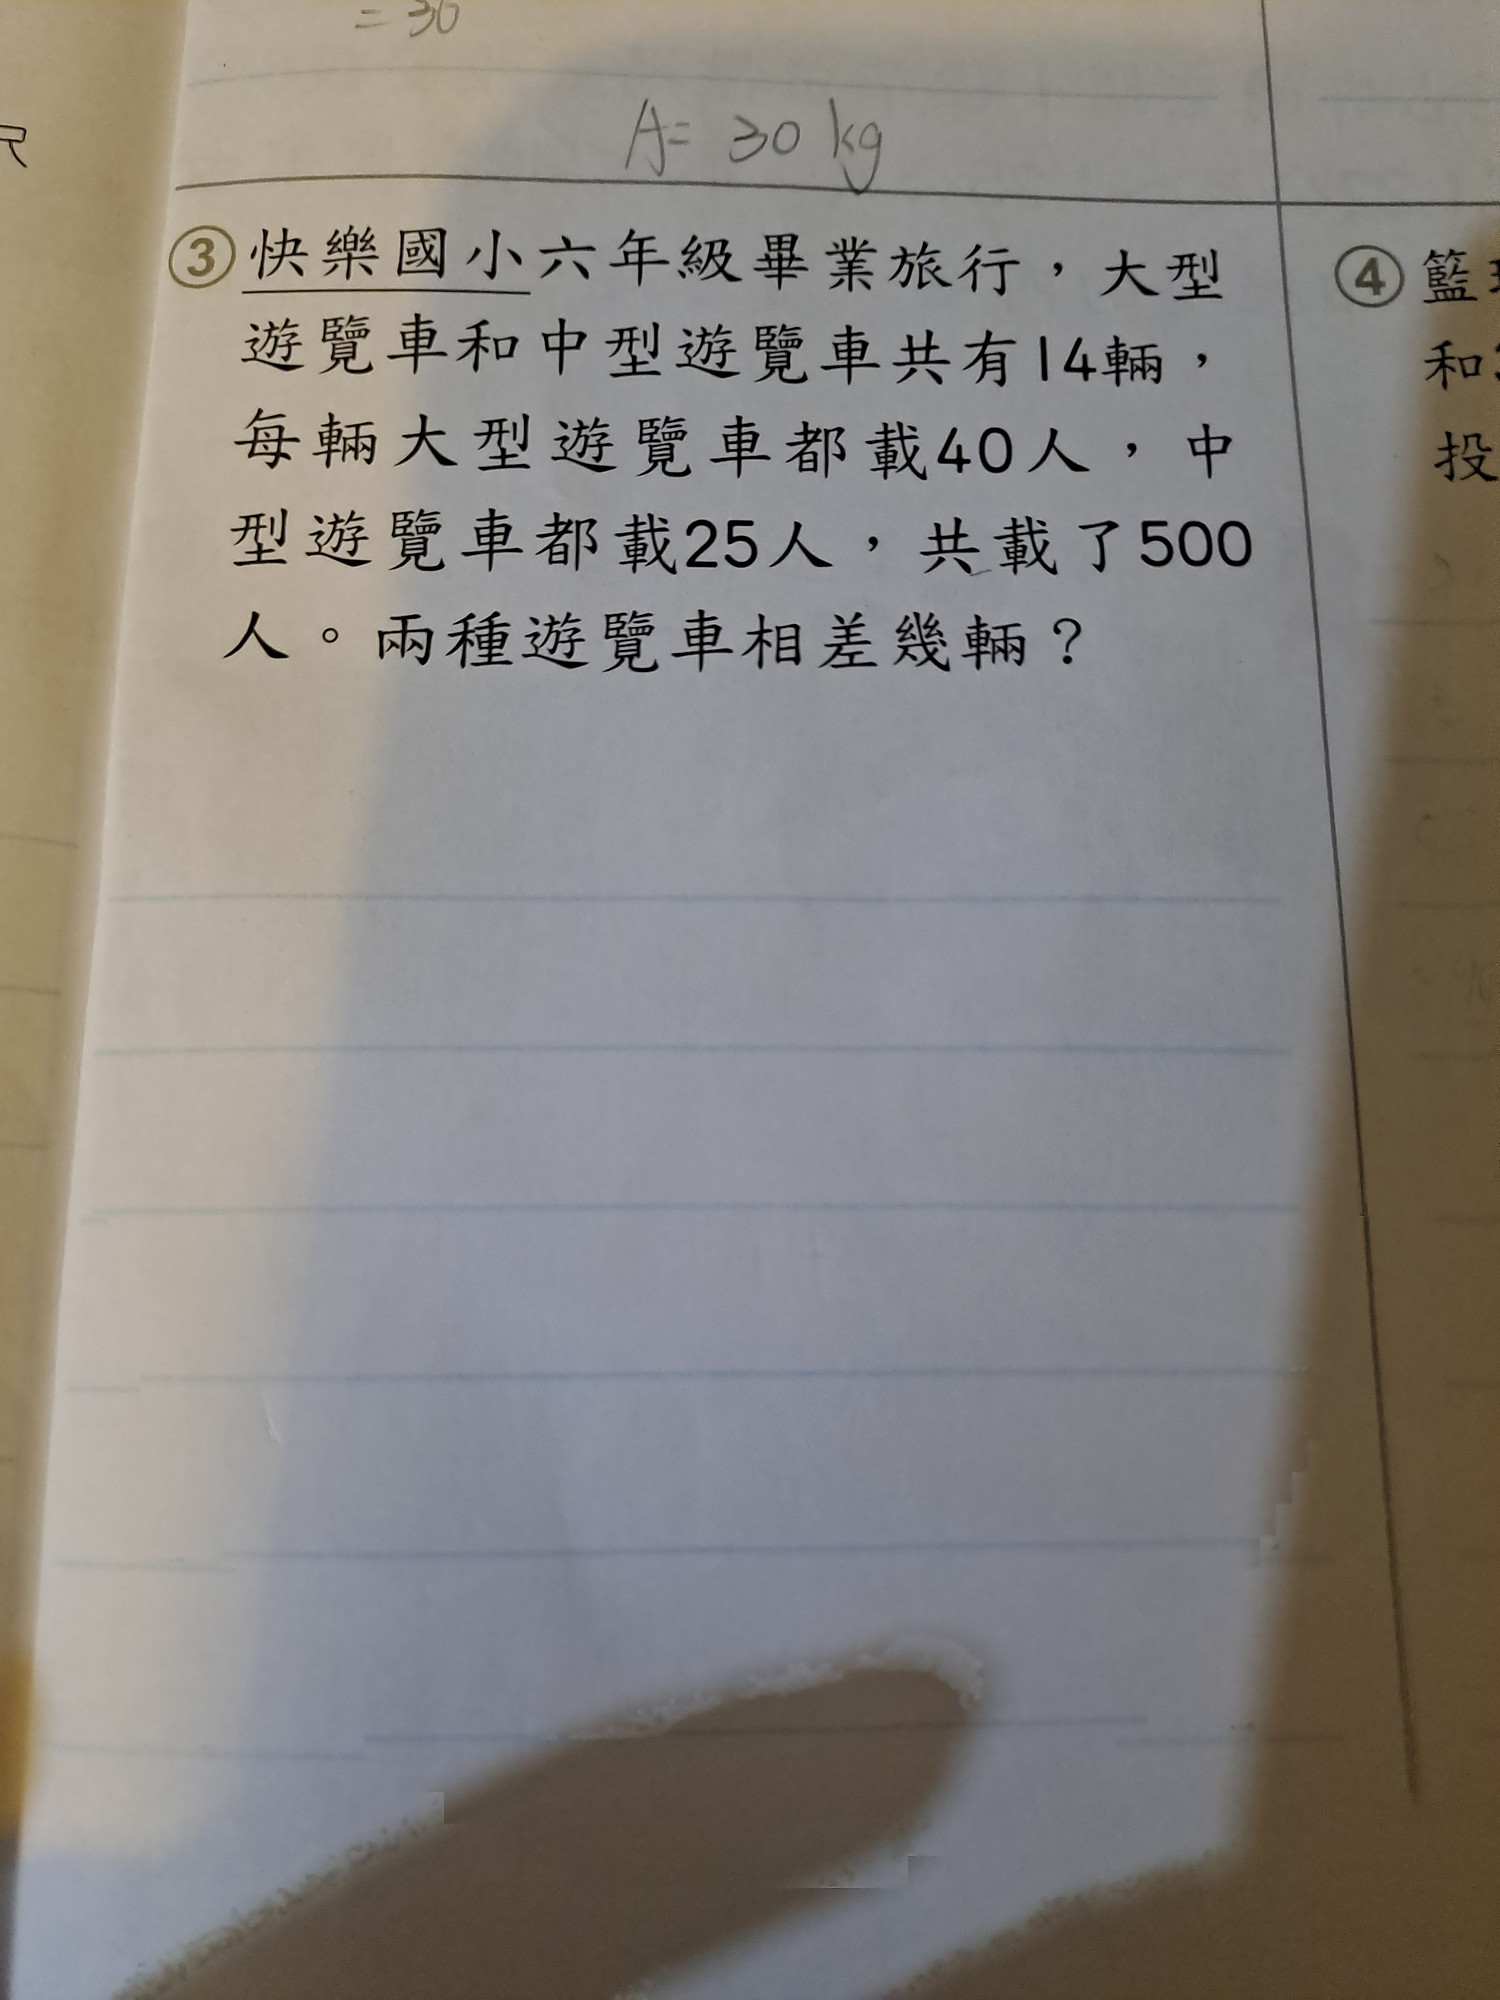 = 30
A= 30 kg
尺
③ 快樂國小六年級畢業旅行，大型
遊覽車和中型遊覽車共有14輛，
每輛大型遊覽車都載40人，中
型遊覽車都載25人，共載了500
人。兩種遊覽車相差幾輛？
④ 籃
和
投